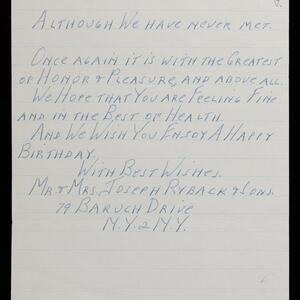 ALTHOUGH WE HAVE NEVER MET.
ONCE AGAIN IT IS WITH THE GREATEST
OF HONOR & PLEASURE, AND ABOVE ALL.
WE HOPE THAT YOU ARE FEELING FINE
AND IN THE BEST OF HEALTH.
AND WE WISH YOU ENJOY A HAPPY
BIRTHDAY.
WITH BEST WISHES.
MR & MRS. JOSEPH RYBACK & SONS.
79 BARUCH DRIVE
N.Y. 2 N.Y.